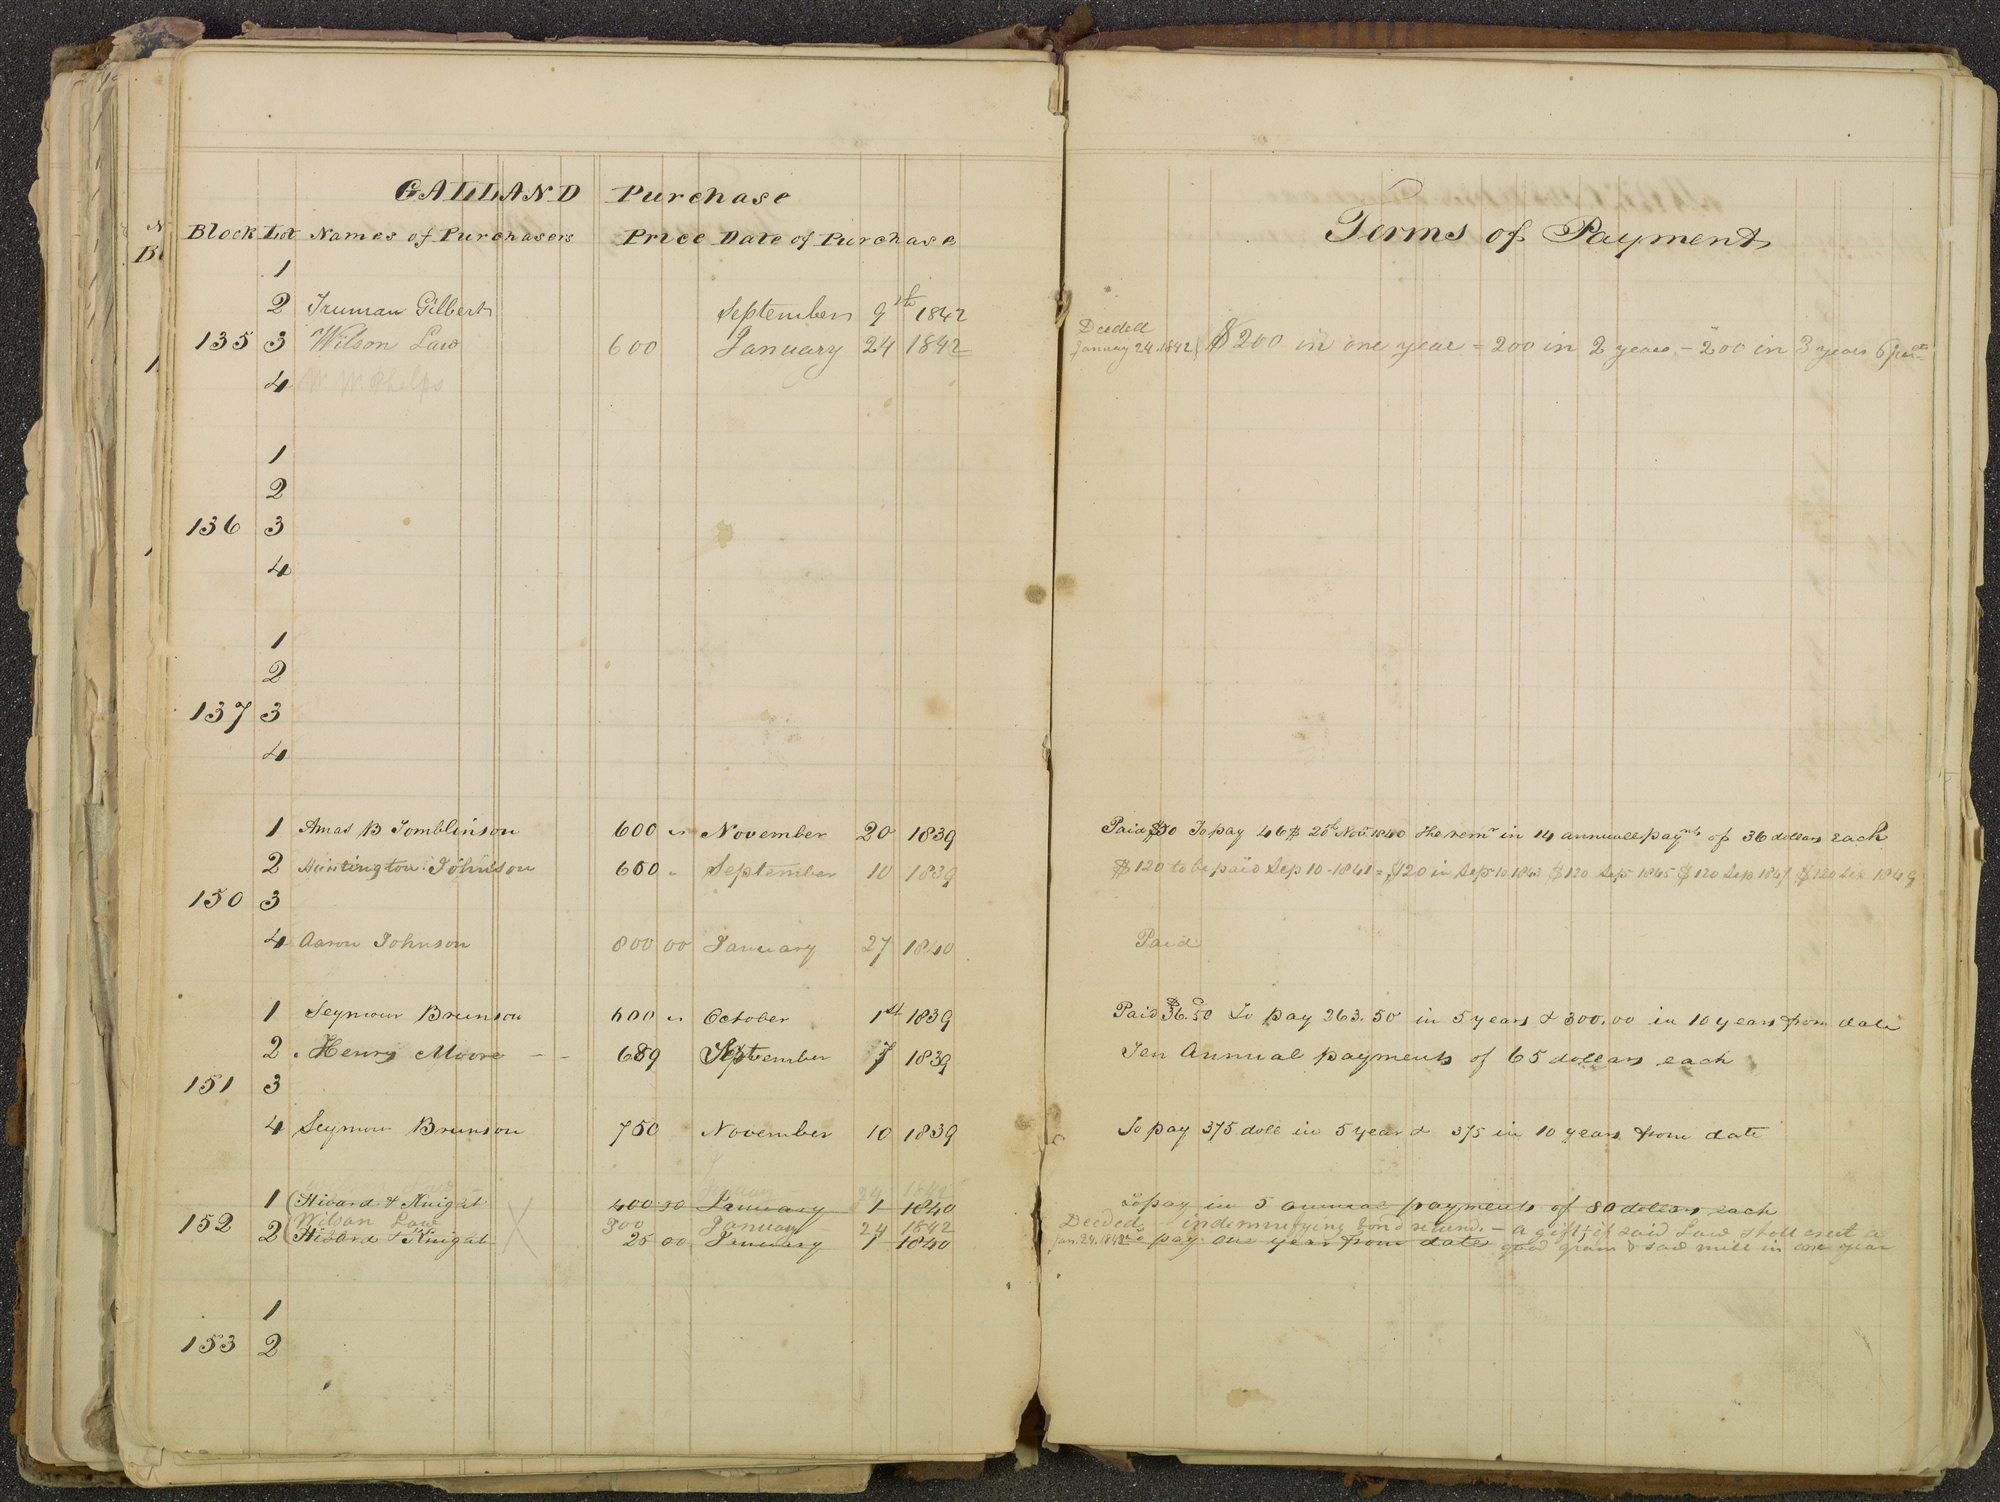 GALLAND Purchase
Block Lot Names of Purchasers Price Date of Purchase
Terms of Payment
1
2 Truman Gilbert September 9th 1842
135 3 Wilson Law 600 January 24 1842 Deeded January 24. 1842 $200 in one year = 200 in 2 years - 200 in 3 years 6 per ct
4 W W Phelps
1
2
136 3
4
1
2
137 3
4
1 Amas B Tomblinson 600 " November 20 1839 Paid $50 To pay 46$ 20th Nov. 1840 the remr in 14 annuall paymts of 36 dollars each
2 Huntington Johnson 600 " September 10 1839 $120 to be paid Sep 10 - 1841 = $120 in Sep 10 1843 $120 Sep 1845 $120 Sep 1847 $120 Sep 1849
150 3
4 Aaron Johnson 800 00 January 27 1840 Paid
1 Seymour Brunson 600 " October 1st 1839 Paid $36.50 to pay 263.50 in 5 years & 300.00 in 10 years from date
2 Henry Moore 689 September 7 1839 Ten Annual payments of 65 dollars each
151 3
4 Seymour Brunson 750 November 10 1839 To pay 375 doll in 5 year & 375 in 10 years from date
1 Hibard & Knight 400 00 January 1 1840 to pay in 5 annual payments of 80 dollars each
152 Wilson Law 300 January 24 1842 Deeded Jan. 24. 1842 indemnifying bond retund. - a gift, if said Law shall erect a good gram & saw mill in one year
2 Hibard & Knight 25 00 January 1 1840 pay one year from date
1
153 2